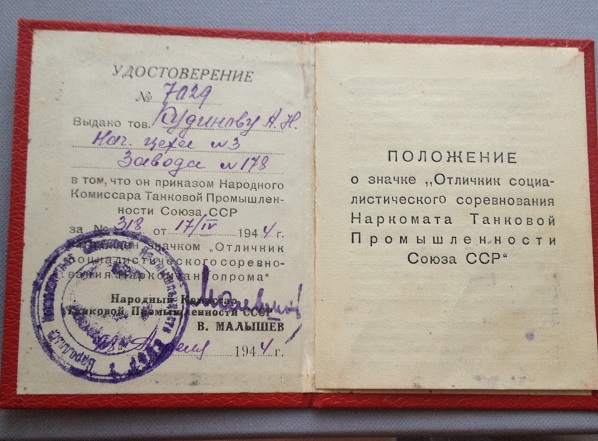 УДОСТОВЕРЕНИЕ
№ 7029
Выдано тов. Кудинову А.Н.
Нач. цеха №3
Завода №178
в том, что он приказом Народного
Комиссара Танковой Промышлен-
ности Союза ССР
за № 318 от 17/IV 1944 г.
награжден значком „Отличник
социалистического соревно-
вания Наркомтанкопрома“
Народный Комиссар
Танковой Промышленности СССР
В. МАЛЫШЕВ
Апреля 1944 г.
ПОЛОЖЕНИЕ
о значке „Отличник социа-
листического соревнования
Наркомата Танковой
Промышленности
Союза ССР“